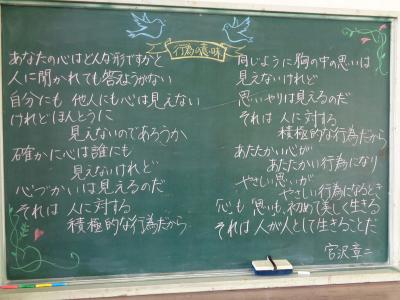 行為の意味
あなたの心はどんな形ですかと
人に聞かれても答えようがない
自分にも 他人にも心は見えない
けれどほんとうに
見えないのであろうか
確かに心は誰にも
見えないけれど
心づかいは見えるのだ
それは 人に対する
積極的な行為だから
同じように胸の中の思いは
見えないけれど
思いやりは見えるのだ
それは 人に対する
積極的な行為だから
あたたかい心が
あたたかい行為になり
やさしい思いが
やさしい行為になるとき
「心」も「思い」も、初めて美しく生きる
それは 人が人として生きることだ
宮沢章二